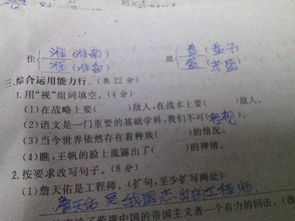 住 准(准确) 准(准备) 皿 盘(盘子) 盆
三、综合运用能力行。(共22分)
1.用“视”组词填空。(4分)
(1)在战略上要( )敌人,在战术上要( )敌人。
(2)语文是一门重要的基础学科,我们不可(忽视)。
(3)当今世界依然存在着种族( )的情况。
(4)瞧,王帆的脸上流露出了( )的神情。
2.按要求改写句子。(8分)
(1)詹天佑是工程师。(扩句,至少扩写两处)
詹天佑是我国杰出的工程师
中国的帝国主义者一个有力的回击。(改